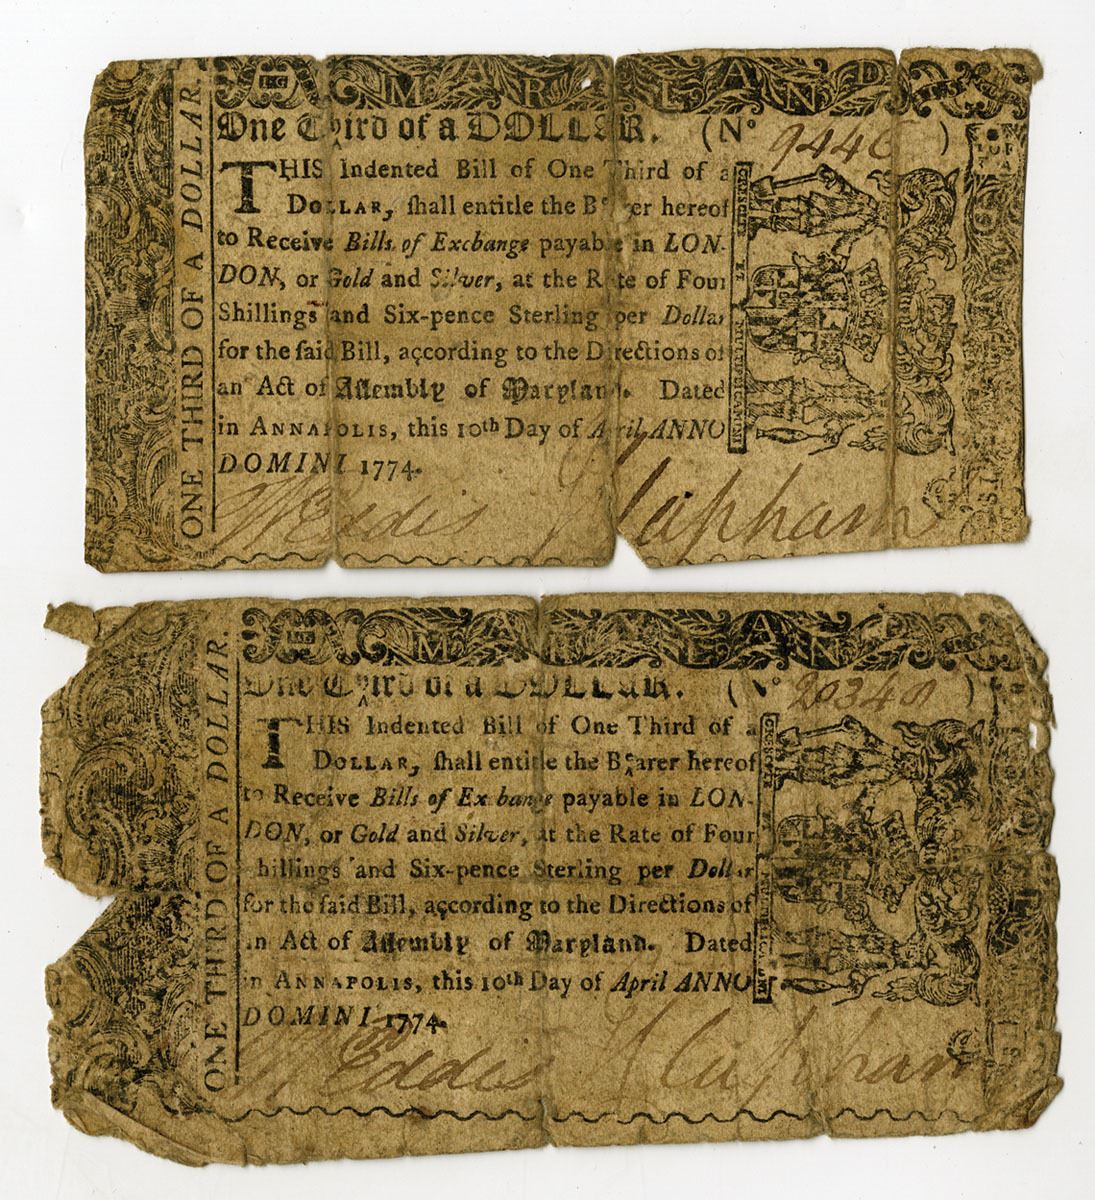 MARYLAND
One Third of a DOLLAR. (No 9446)
ONE THIRD OF A DOLLAR.
THIS Indented Bill of One Third of a
DOLLAR, ſhall entitle the Bearer hereof
to Receive Bills of Exchange payable in LON-
DON, or Gold and Silver, at the Rate of Four
Shillings and Six-pence Sterling per Dollar
for the ſaid Bill, according to the Directions of
an Act of Aſſembly of Maryland. Dated
in ANNAPOLIS, this 10th Day of April ANNO
DOMINI 1774.
CRESCITE ET MULTIPLICAMINI
W Eddis J Clapham
MARYLAND
One Third of a DOLLAR. (No 20340)
ONE THIRD OF A DOLLAR.
THIS Indented Bill of One Third of a
DOLLAR, ſhall entitle the Bearer hereof
to Receive Bills of Exchange payable in LON-
DON, or Gold and Silver, at the Rate of Four
Shillings and Six-pence Sterling per Dollar
for the ſaid Bill, according to the Directions of
an Act of Aſſembly of Maryland. Dated
in ANNAPOLIS, this 10th Day of April ANNO
DOMINI 1774.
W Eddis J Clapham